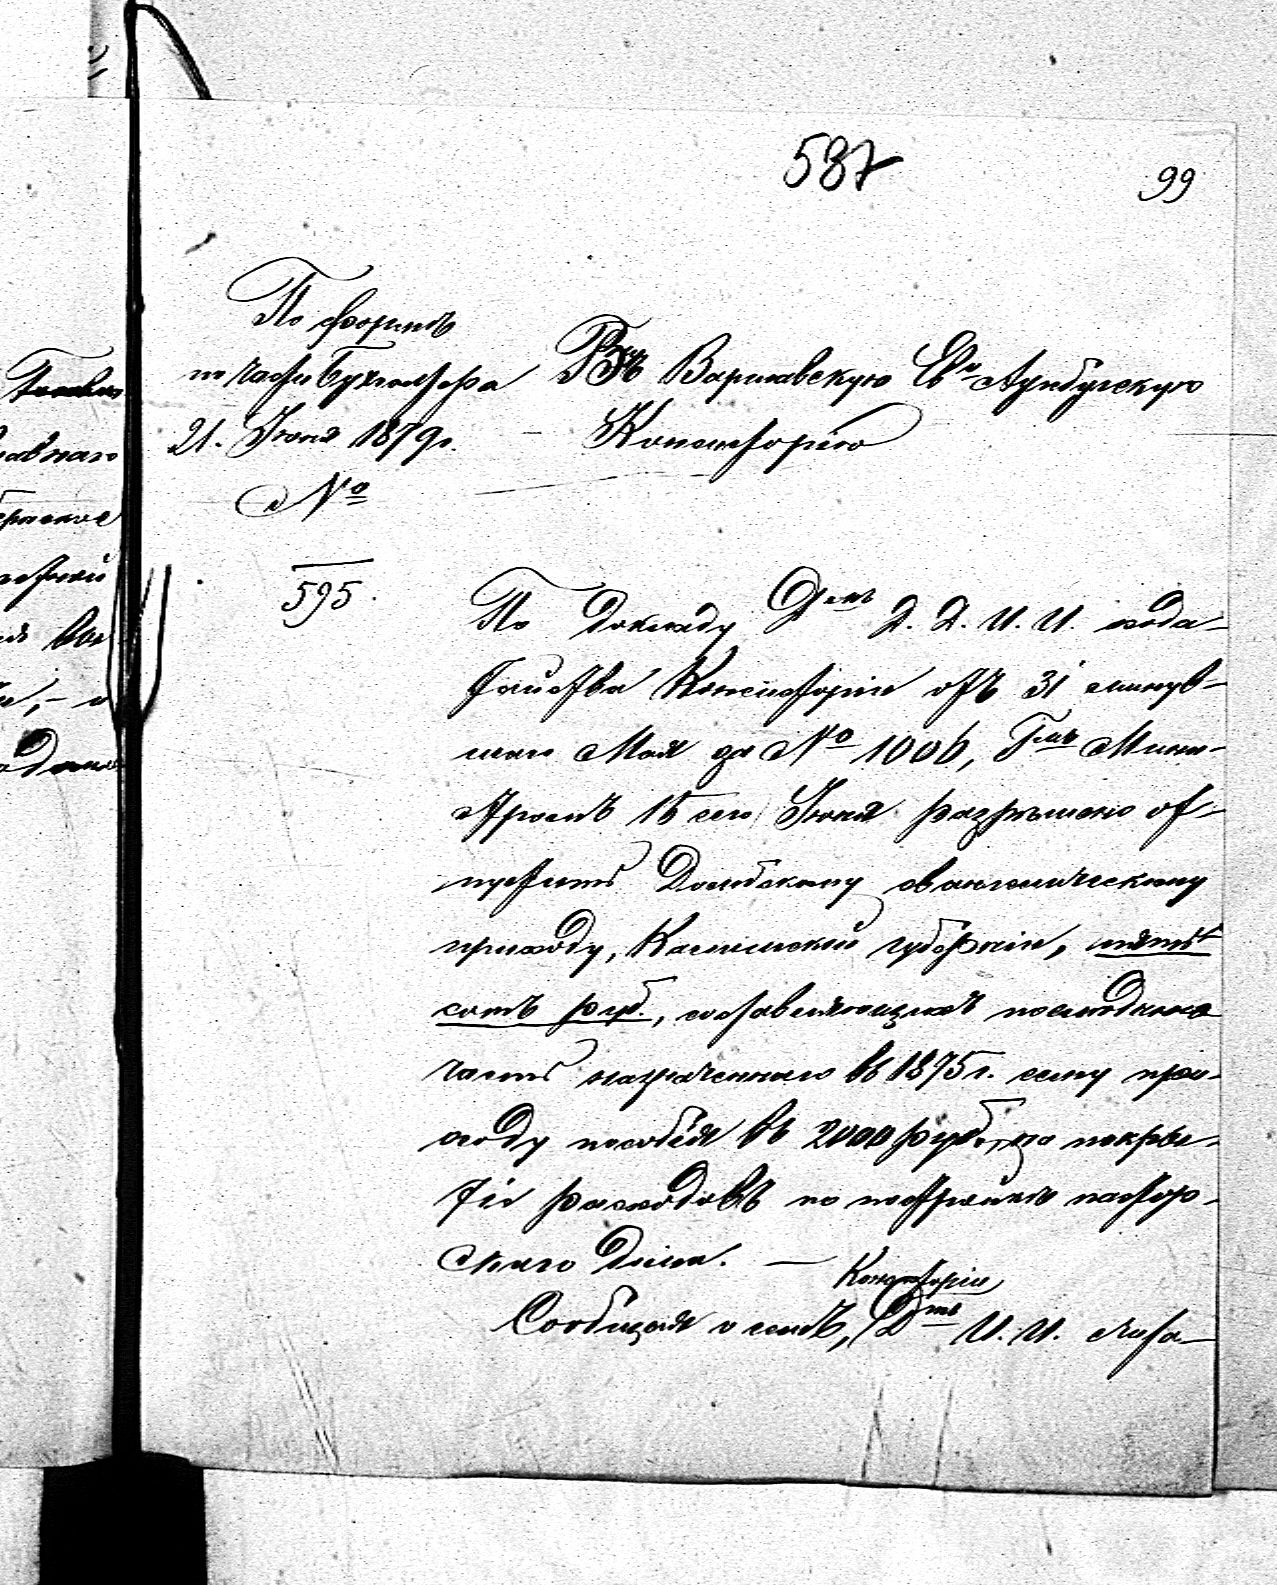 587
99
По формѣ
по части Бухгалтера
21. Іюня 1879 г.
№
595.
Въ Варшавскую Ев. Аугсбургскую
Консисторію
По докладу Д. Д. И. И. хода-
тайства Консисторіи отъ 31 минув-
шаго Мая за № 1006, Г-мъ Мини-
стромъ 15 сего Іюня разрѣшено от-
пустить Домбскому евангелическому
приходу, Калишской губерніи, пять
сотъ руб., составляющихъ послѣднюю
часть назначеннаго въ 1875 г. сему при-
ходу пособія въ 2000 руб., на покры-
тіе расходовъ по постройкѣ пастор-
скаго дома. —
Консисторіи
Сообщая о семъ, Д-тъ И. И.